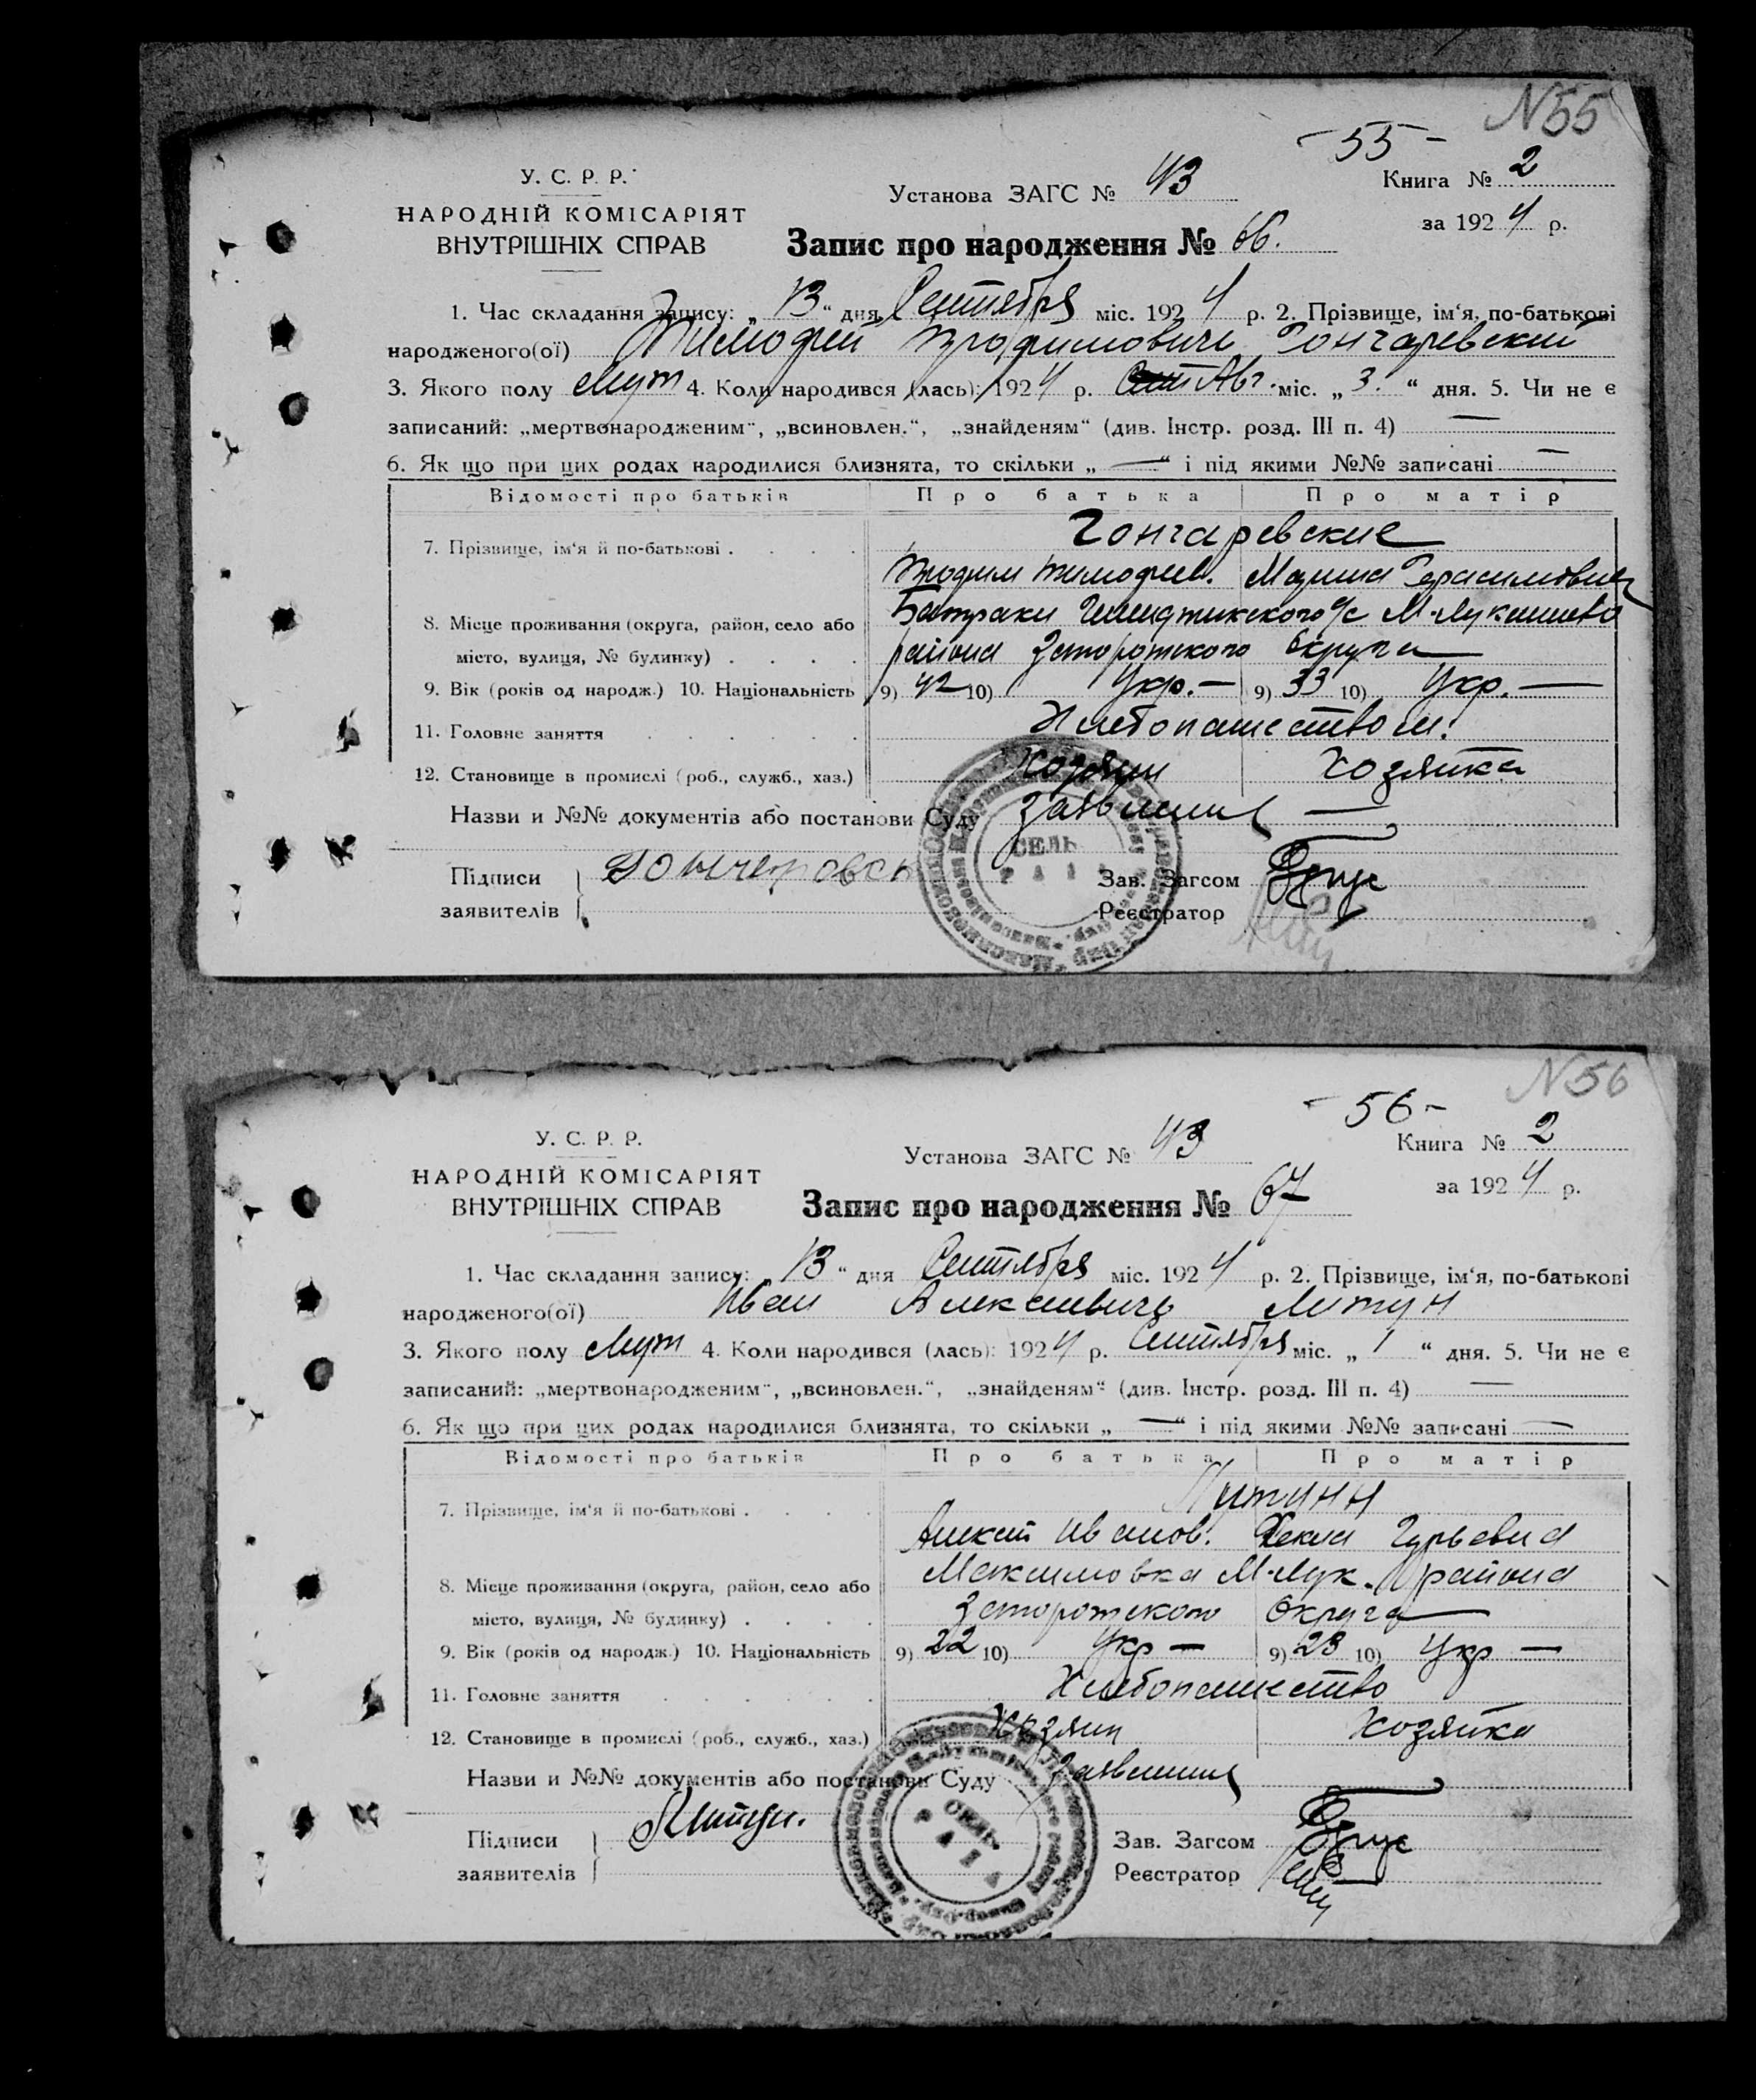 N55
- 55 -
У. С. Р. Р.
Установа ЗАГС № 43
Книга № 2
НАРОДНІЙ КОМІСАРІЯТ
за 1924 р.
ВНУТРІШНІХ СПРАВ
Запис про народження № 66.
1. Час складання запису: „ 13 “ дня Сентября міс. 1924 р. 2. Прізвище, ім‘я, по-батькові
народженого(ої) Тимофей Трофимовичь Гончаревский
3. Якого полу Муж 4. Коли народився (лась): 1924 р. Авг. міс. „ 3. “ дня. 5. Чи не є
записаний: „мертвонародженим“, „всиновлен.“, „знайденям“ (див. Інстр. розд. III п. 4) —
6. Як що при цих родах народилися близнята, то скільки „ — “ і під якими №№ записані —
Відомості про батьків Про батька Про матір
Гончаревские
7. Прізвище, ім‘я й по-батькові . . . .
Трофим Тимофеев. Герасимовна
Батраки с/с М-Лукашево
8. Місце проживання (округа, район, село або
місто, вулиця, № будинку) . . . . района Запорожского Округа —
9. Вік (років од народж.) 10. Національність 9) 42 10) Укр. — 9) 33 10) Укр. —
11. Головне заняття . . . . . . Хлебопашеством.
12. Становище в промислі (роб., служб., хаз.) Хозяин Хозяйка
Назви и №№ документів або постанови Суду Заявление —
СЕЛЬ
РАДА
Підписи
заявителів
Зав. Загсом
Реєстратор
N56
- 56 -
У. С. Р. Р.
Установа ЗАГС № 43
Книга № 2
НАРОДНІЙ КОМІСАРІЯТ
за 1924 р.
ВНУТРІШНІХ СПРАВ
Запис про народження № 67
1. Час складання запису: „ 13 “ дня Сентября міс. 1924 р. 2. Прізвище, ім‘я, по-батькові
народженого(ої) Иван Алексеевичь Литун
3. Якого полу Муж 4. Коли народився (лась): 1924 р. Сентября міс. „ 1 “ дня. 5. Чи не є
записаний: „мертвонародженим“, „всиновлен.“, „знайденям“ (див. Інстр. розд. III п. 4) —
6. Як що при цих родах народилися близнята, то скільки „ — “ і під якими №№ записані —
Відомості про батьків Про батька Про матір
7. Прізвище, ім‘я й по-батькові . . . .
Алексей Иванов. Фекла Гурьевна
Максимовка М-Лук. района
8. Місце проживання (округа, район, село або
місто, вулиця, № будинку) . . . . Запорожского Округа —
9. Вік (років од народж.) 10. Національність 9) 22 10) Укр — 9) 23 10) Укр —
11. Головне заняття . . . . . . Хлебопашество
12. Становище в промислі (роб., служб., хаз.) Хозяин Хозяйка
Назви и №№ документів або постанови Суду Заявление
СЕЛЬ
РАДА
Підписи
заявителів
Зав. Загсом
Реєстратор